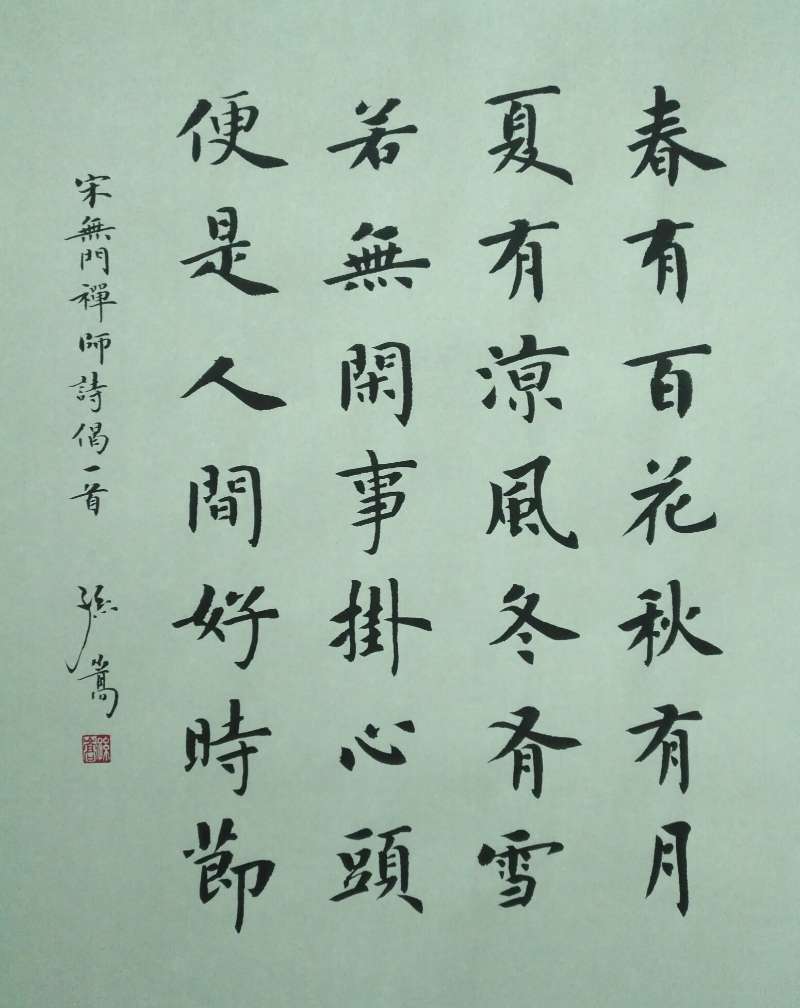 春有百花秋有月
夏有涼風冬有雪
若無閑事掛心頭
便是人間好時節
宋無門禪師詩偈一首
孫嵩
孫嵩